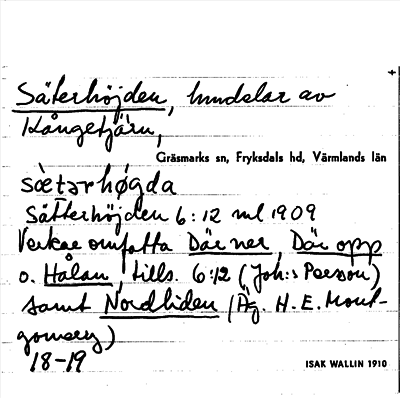 Säterhöjden, hmdelar av
Kångetjärn,
Gräsmarks sn, Fryksdals hd, Värmlands län
sæ̀tərhøgda
Sätterhöjden 6:12 ml 1909
Verkar omfatta Där ner, Där opp
o. Hålan, tills. 6:12 (Joh:s Persson)
samt Nordliden (Äg. H. E. Mont-
gomery)
18-19
ISAK WALLIN 1910